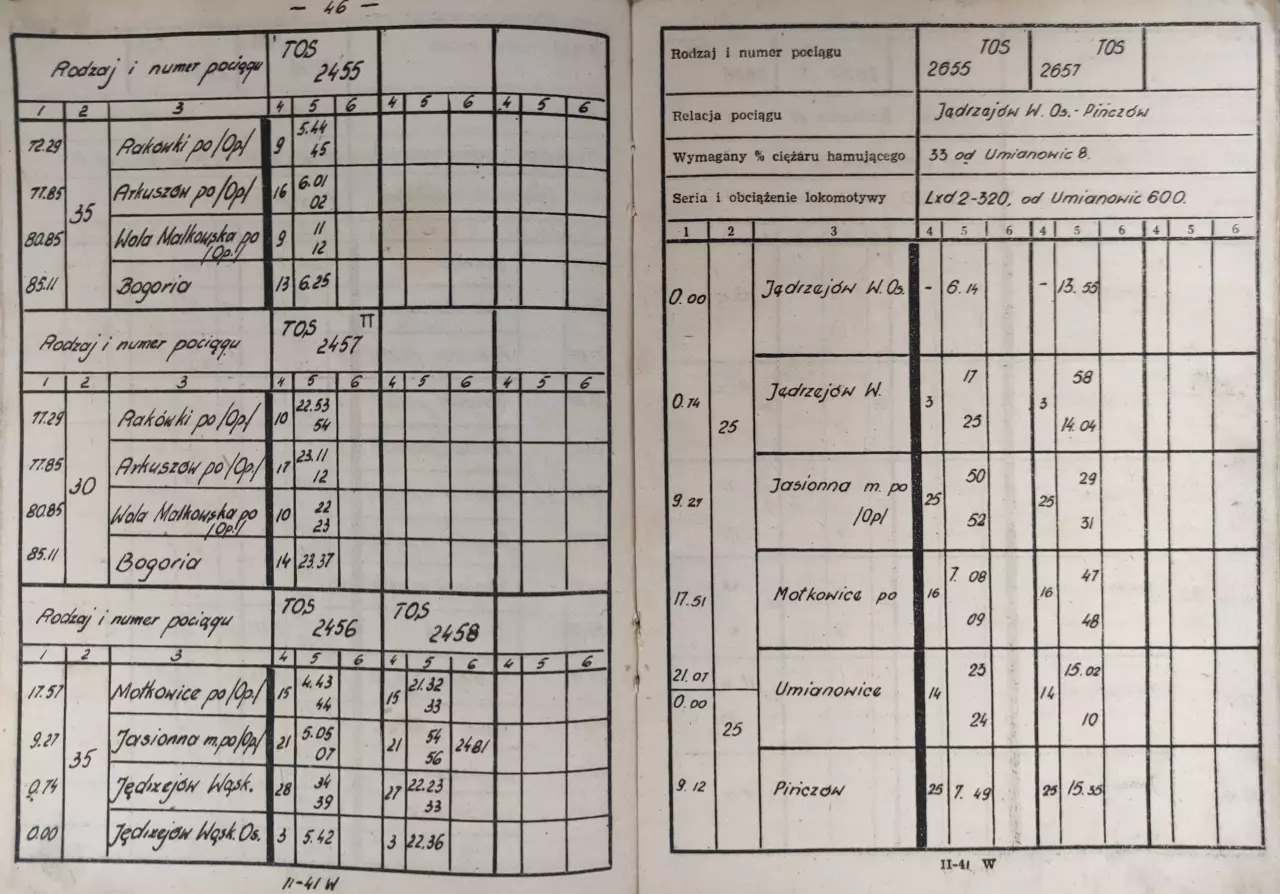 — 46 —
Rodzaj i numer pociągu TOS
2455
1 2 3 4 5 6 4 5 6 4 5 6
72.29 Rakówki po /Op/ 9 5.44
45
77.85 35 Arkuszów po /Op/ 16 6.01
02
80.85 Wola Malkowska po /Op./ 9 11
12
85.11 Bogoria 13 6.25
Rodzaj i numer pociągu TOS π
2457
1 2 3 4 5 6 4 5 6 4 5 6
77.29 Rakówki po /Op/ 10 22.53
54
77.85 30 Arkuszów po /Op./ 17 23.11
12
80.85 Wola Malkowska po /Op./ 10 22
23
85.11 Bogoria 14 23.37
Rodzaj i numer pociągu TOS TOS
2456 2458
1 2 3 4 5 6 4 5 6 4 5 6
17.57 Motkowice po /Op./ 15 4.43 15 21.32
44 33
9.27 35 Jasionna m.po /Op/ 21 5.05 21 54 2481
07 56
0.74 Jędrzejów Wąsk. 28 34 27 22.23
39 33
0.00 Jędrzejów Wąsk. Os. 3 5.42 3 22.36
II-41 W
Rodzaj i numer pociągu TOS TOS
2655 2657
Relacja pociągu Jądrzejów W. Os. - Pińczów
Wymagany % ciężaru hamującego 33 od Umianowic 8.
Seria i obciążenie lokomotywy Lxd2-320, od Umianowic 600.
1 2 3 4 5 6 4 5 6 4 5 6
0.00 Jądrzejów W. Os. - 6.14 - 13.55
0.74 25 Jądrzejów W. 3 17 3 58
25 14.04
9.27 Jasionna m. po /Op/ 25 50 25 29
52 31
17.51 Motkowice po 16 7.08 16 47
09 48
21.07 Umianowice 14 23 14 15.02
0.00 25 24 10
9.12 Pińczów 25 7.49 25 15.35
II-41 W